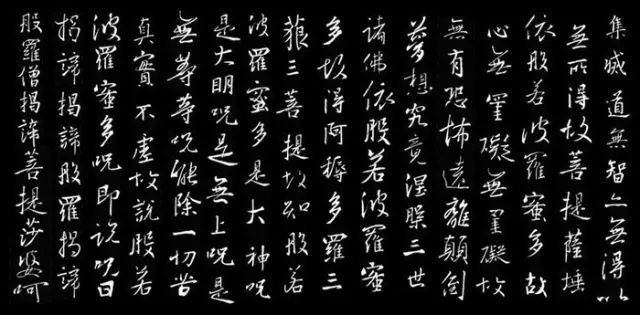 集滅道無智亦無得以
無所得故菩提薩埵
依般若波羅蜜多故
心無罣礙無罣礙故
無有恐怖遠離顛倒
夢想究竟涅槃三世
諸佛依般若波羅蜜
多故得阿耨多羅三
藐三菩提故知般若
波羅蜜多是大神呪
是大明呪是無上呪是
無等等呪能除一切苦
真實不虛故說般若
波羅蜜多呪即說呪曰
揭諦揭諦般羅揭諦
般羅僧揭諦菩提莎婆呵